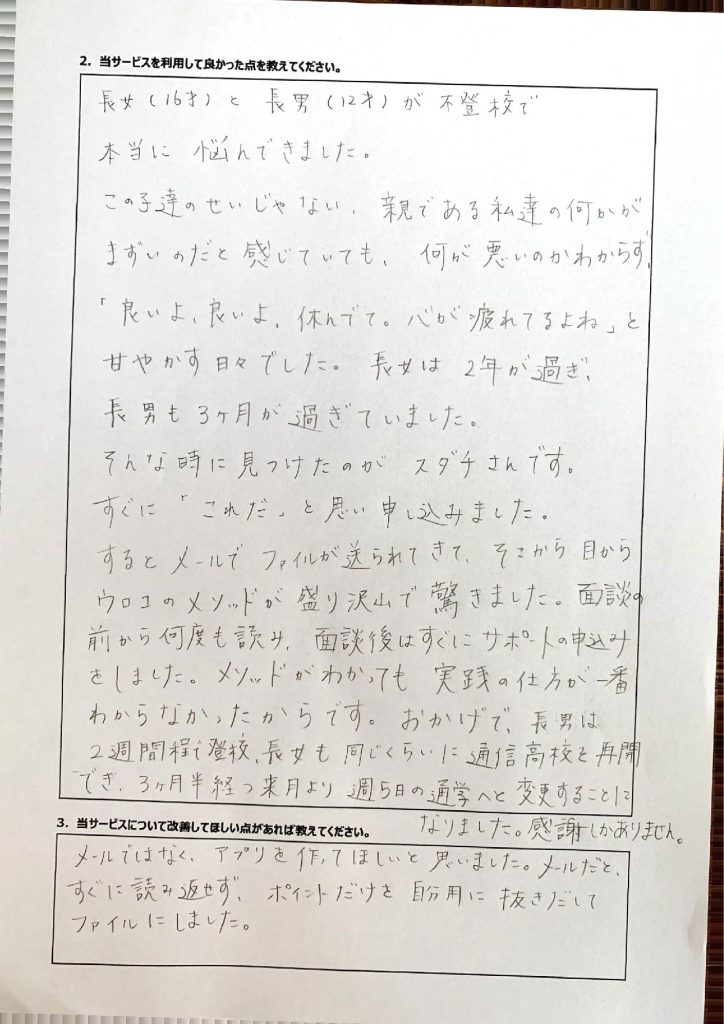 2. 当サービスを利用して良かった点を教えてください。
長女(16才)と 長男(12才)が 不登校で
本当に 悩んできました。
この子達のせいじゃない、親である私達の何かが
まずいのだと 感じていても、何が 悪いのかわからず、
「良いよ、良いよ、休んでて。心が疲れてるよね」と
甘やかす日々でした。長女は 2年が過ぎ、
長男も 3ヶ月が 過ぎていました。
そんな時に見つけたのが スダチさんです。
すぐに 「これだ」と思い申し込みました。
するとメールで ファイルが送られてきて、そこから 目から
ウロコのメソッドが 盛り沢山で 驚きました。面談の
前から何度も読み、面談後はすぐにサポートの申込み
をしました。メソッドがわかっても 実践の仕方が一番
わからなかったからです。おかげで、長男は
2週間程で登校、長女も 同じくらいに通信高校を再開
でき、3ヶ月半経つ来月より 週5日の通学へと 変更することに
なりました。感謝しかありません。
3. 当サービスについて改善してほしい点があれば教えてください。
メールではなく、アプリを作ってほしいと 思いました。メールだと、
すぐに読み返せず、ポイントだけを 自分用に 抜きだして
ファイルにしました。